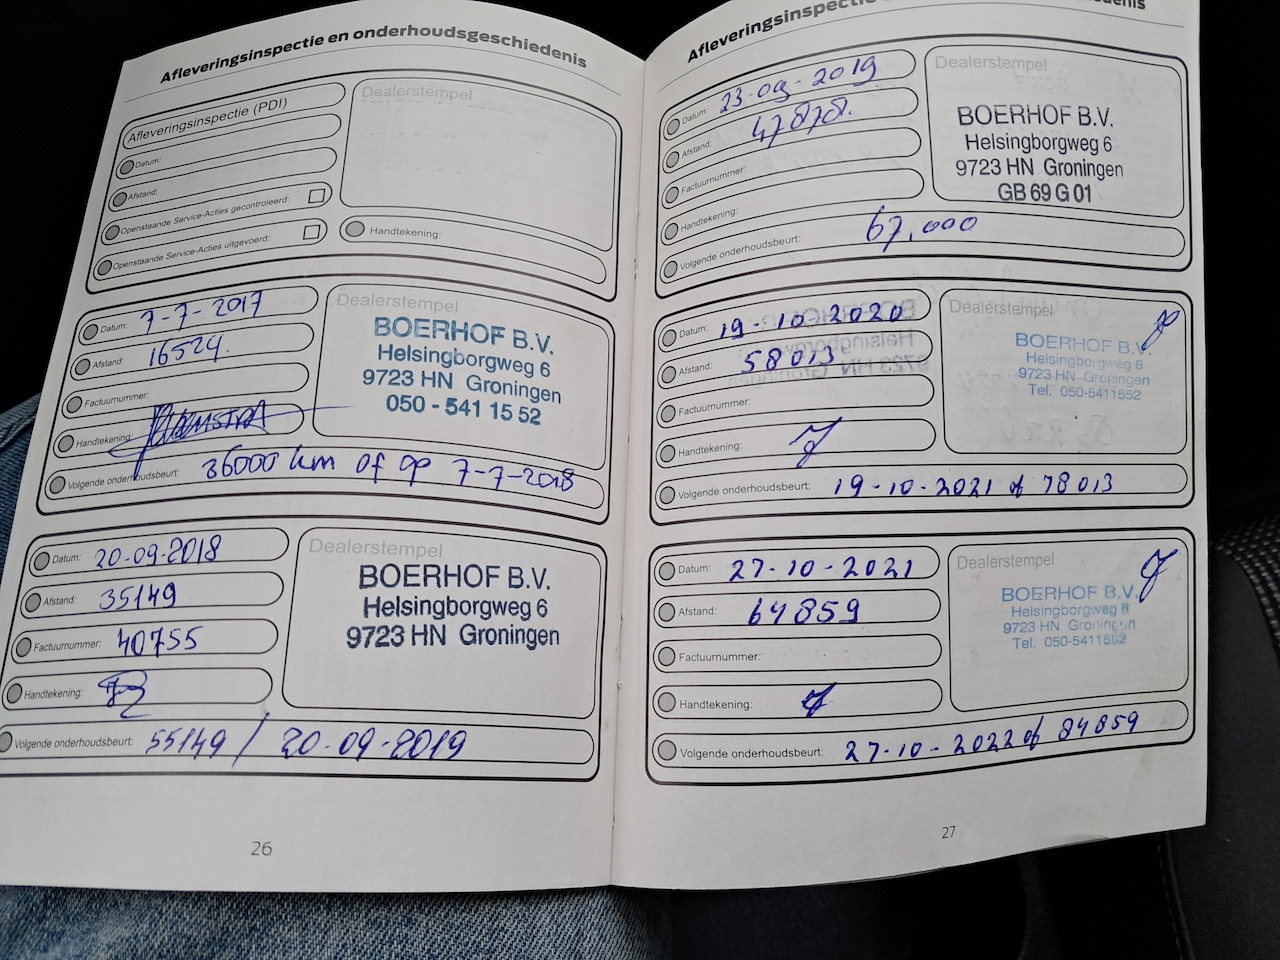 Afleveringsinspectie en onderhoudsgeschiedenis
Afleveringsinspectie (PDI)
Datum:
Afstand:
Openstaande Service-Acties gecontroleerd:
Openstaande Service-Acties uitgevoerd:
Dealerstempel
Handtekening:
Datum: 7-7-2017
Afstand: 16524.
Factuurnummer:
Handtekening:
Volgende onderhoudsbeurt: 36000 km of op 7-7-2018
Dealerstempel
BOERHOF B.V.
Helsingborgweg 6
9723 HN Groningen
050 - 541 15 52
Datum: 20-09-2018
Afstand: 35149
Factuurnummer: 40755
Handtekening:
Volgende onderhoudsbeurt: 55149 / 20-09-2019
Dealerstempel
BOERHOF B.V.
Helsingborgweg 6
9723 HN Groningen
26
Afleveringsinspectie
Datum: 23-09-2019
Afstand: 47878.
Factuurnummer:
Handtekening:
Volgende onderhoudsbeurt: 67.000
Dealerstempel
BOERHOF B.V.
Helsingborgweg 6
9723 HN Groningen
GB 69 G 01
Datum: 19-10-2020
Afstand: 58013
Factuurnummer:
Handtekening:
Volgende onderhoudsbeurt: 19-10-2021 of 78013
Dealerstempel
BOERHOF B.V.
Helsingborgweg 6
9723 HN Groningen
Tel. 050-5411552
Datum: 27-10-2021
Afstand: 64859
Factuurnummer:
Handtekening:
Volgende onderhoudsbeurt: 27-10-2022 of 84859
Dealerstempel
BOERHOF B.V.
Helsingborgweg 6
9723 HN Groningen
Tel. 050-5411552
27